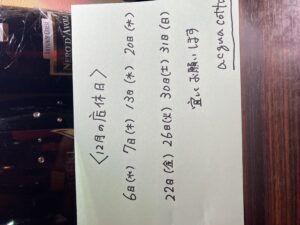 〈12月の店休日〉
6日(水) 7日(木) 13日(水) 20日(水)
22日(金) 26日(火) 30日(土) 31日(日)
宜しくお願いします
acqua cotta
NERO D'AVOLA